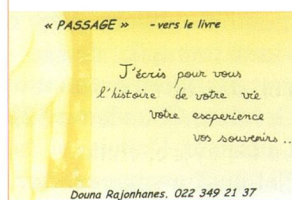 « PASSAGE » - vers le livre
J'écris pour vous
l'histoire de votre vie
votre experience
vos souvenirs ...
Douna Rajonhanes. 022 349 21 37